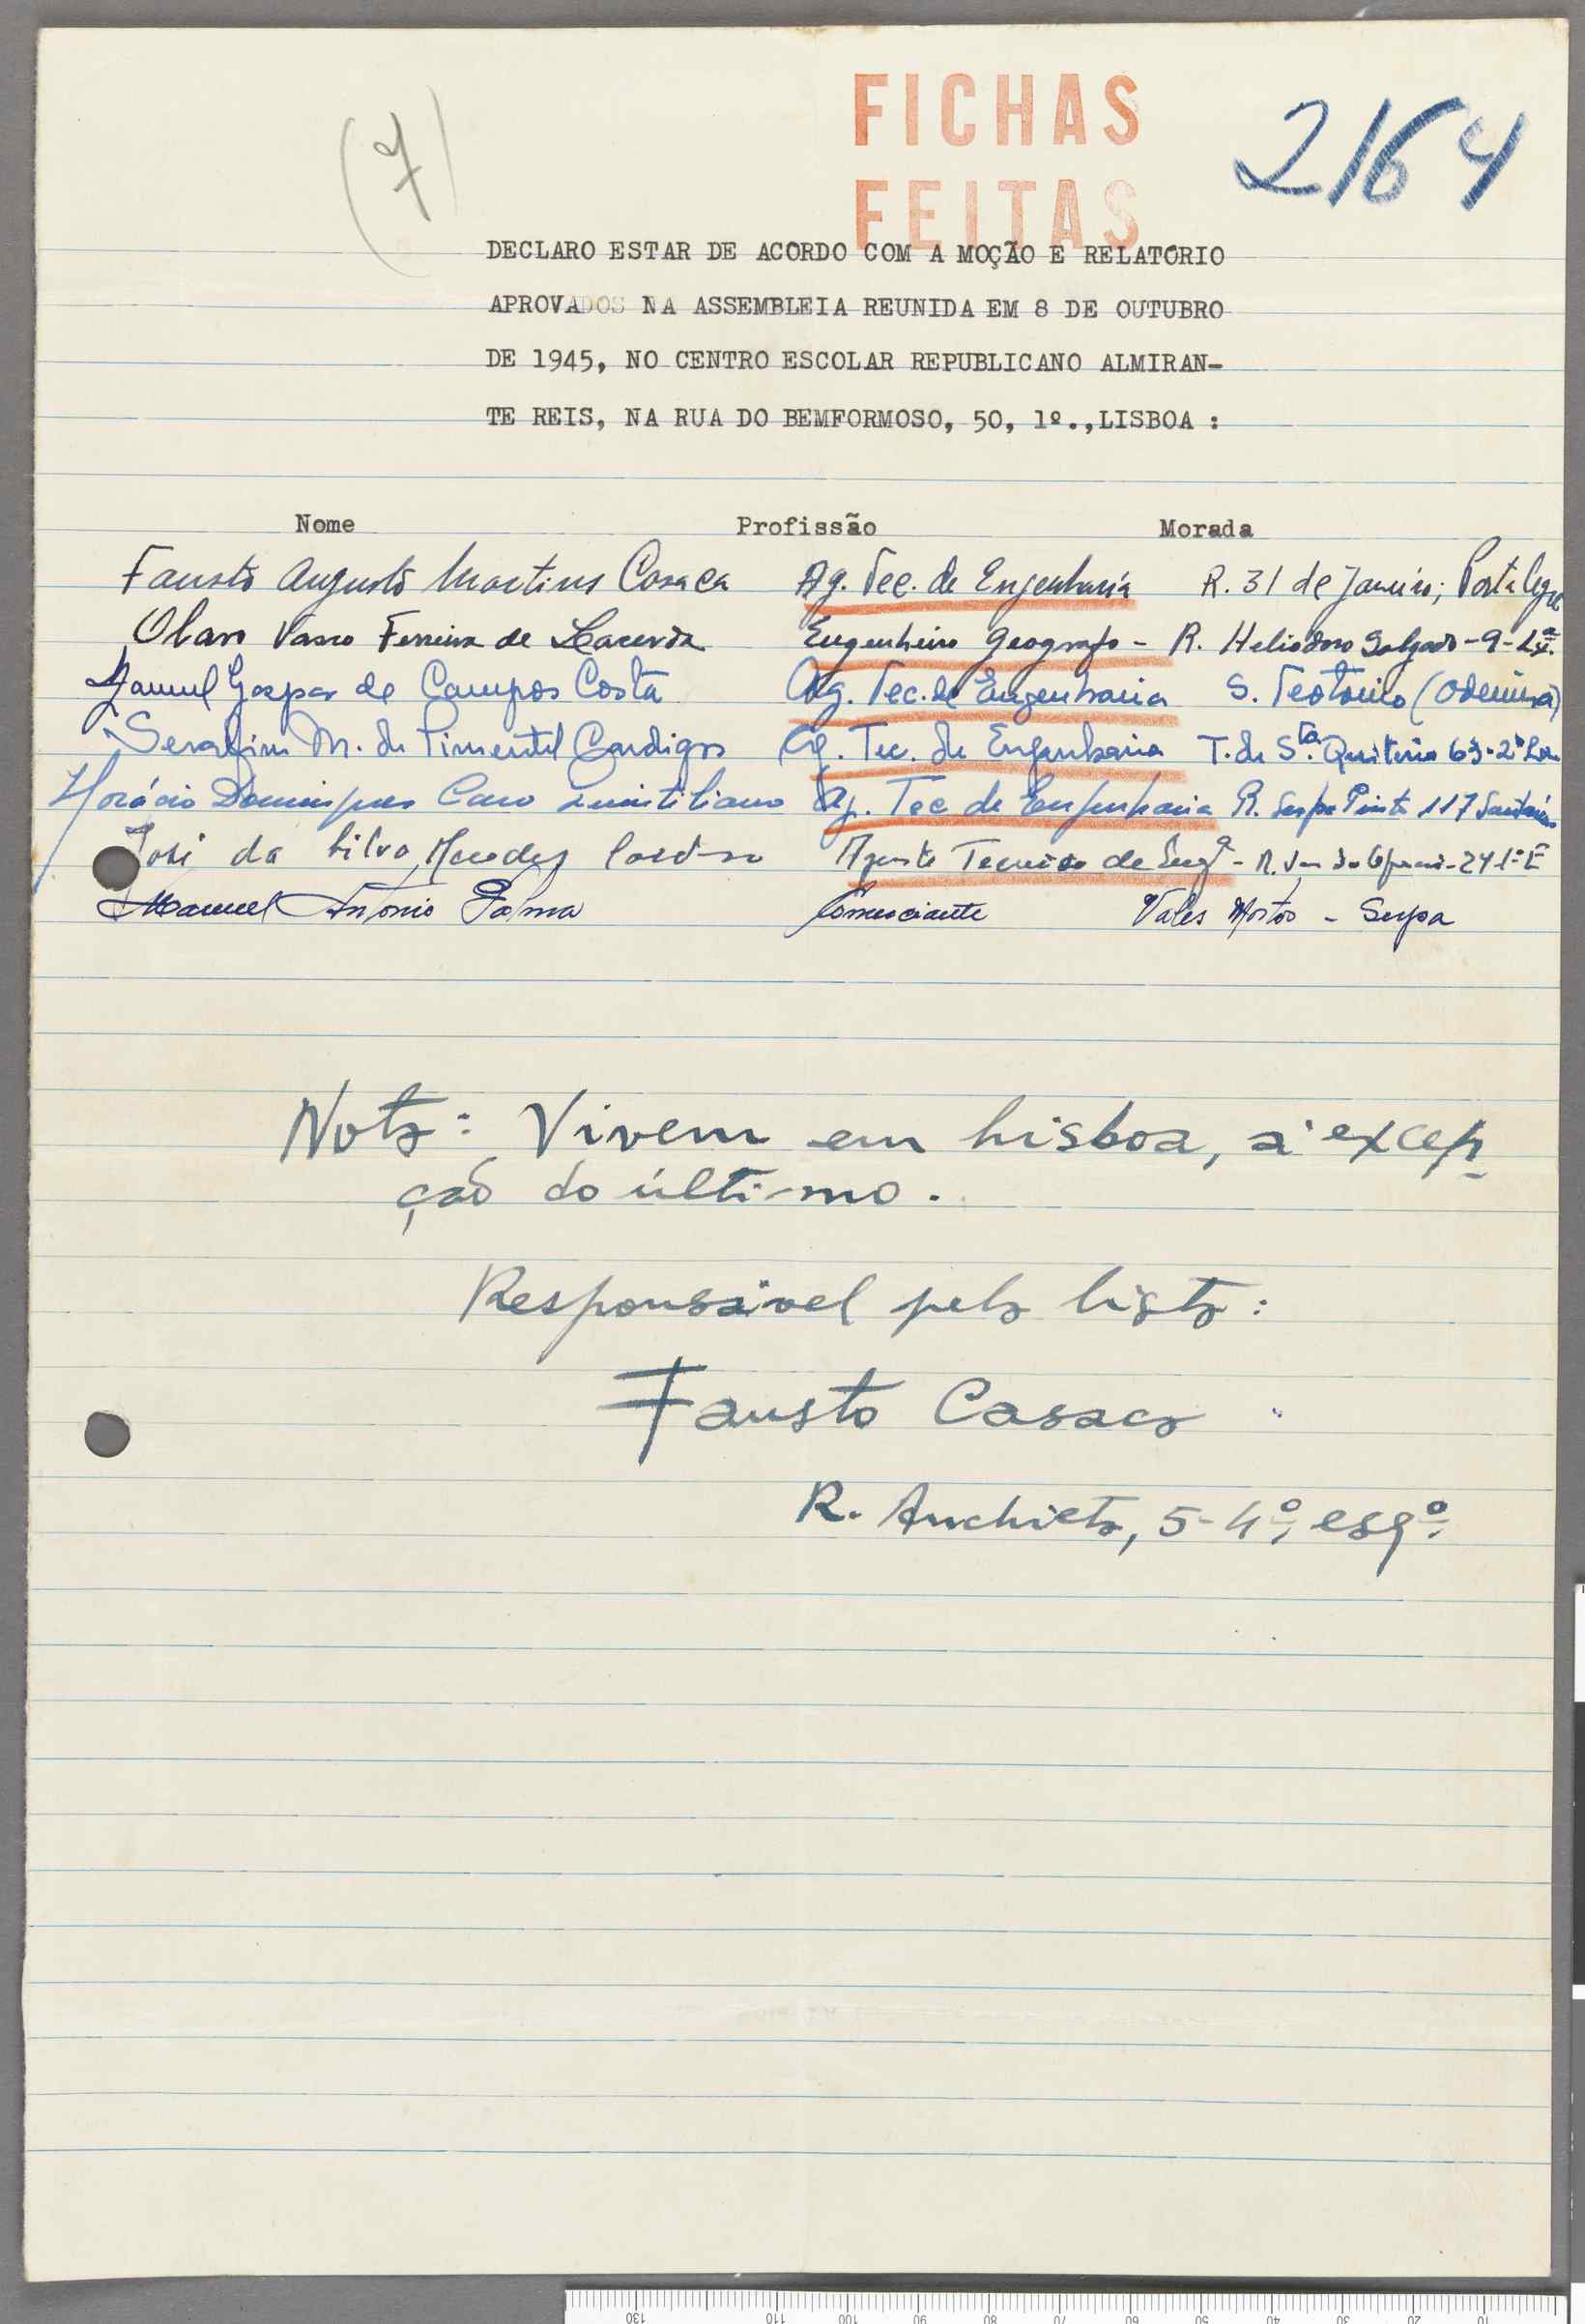 FICHAS
FEITAS
2164
(7)
DECLARO ESTAR DE ACORDO COM A MOÇÃO E RELATÓRIO
APROVADOS NA ASSEMBLEIA REUNIDA EM 8 DE OUTUBRO
DE 1945, NO CENTRO ESCOLAR REPUBLICANO ALMIRAN-
TE REIS, NA RUA DO BEMFORMOSO, 50, 1º.,LISBOA :
Nome Profissão Morada
Fausto Augusto Martins Casaca Ag. Tec. de Engenharia R. 31 de Janeiro; Portalegre
Olavo Vasco Ferreira de Lacerda Engenheiro Geografo - R. Heliodoro Salgado - 9 - Lxª.
Manuel Gaspar de Campos Costa Ag. Tec. de Engenharia S. Teotonio (Odemira)
Serafim M. de Pimentel Cardigos Ag. Tec. de Engenharia T. de Sta. Quiteria 63-2º
Horácio Domingues Caro Quintiliano Ag. Tec de Engenharia R. Serpa Pinto 117 Santarém
José da Silva Mendes Agente Tecnico de Engª - R. 24 1º E
Manuel António Palma Comerciante Vales Mortos - Serpa
Nota: Vivem em Lisboa, à excep-
ção do último.
Responsável pela lista:
Fausto Casaca
R. Anchieta, 5-4º, esqº.
130 110 100 90 80 70 60 50 40 30 20 10